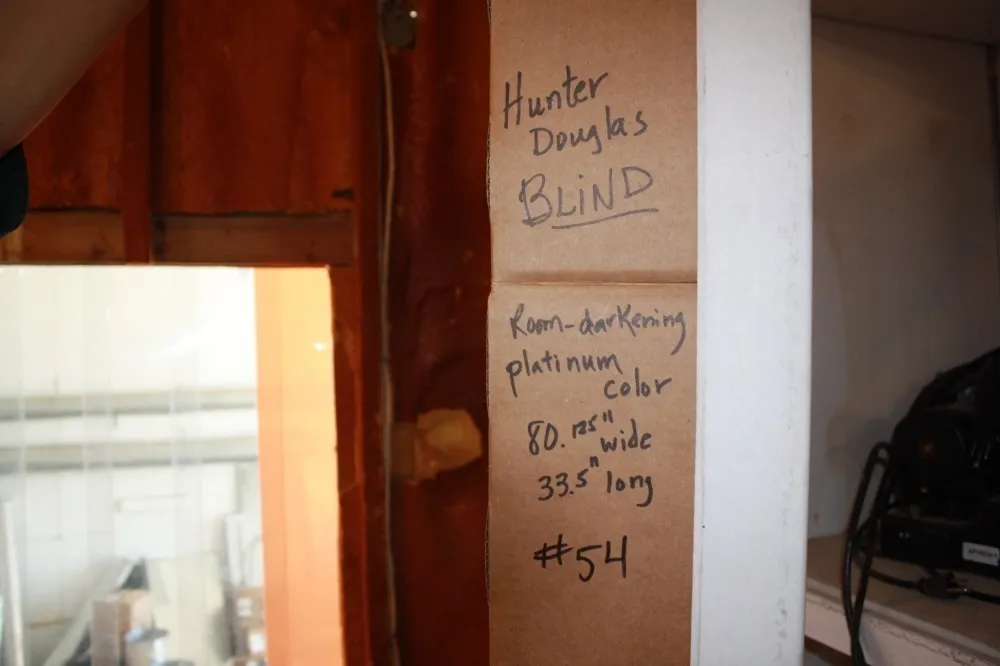 Hunter
Douglas
BLiND
Room-darkening
platinum
color
80.125" wide
33.5" long
#54